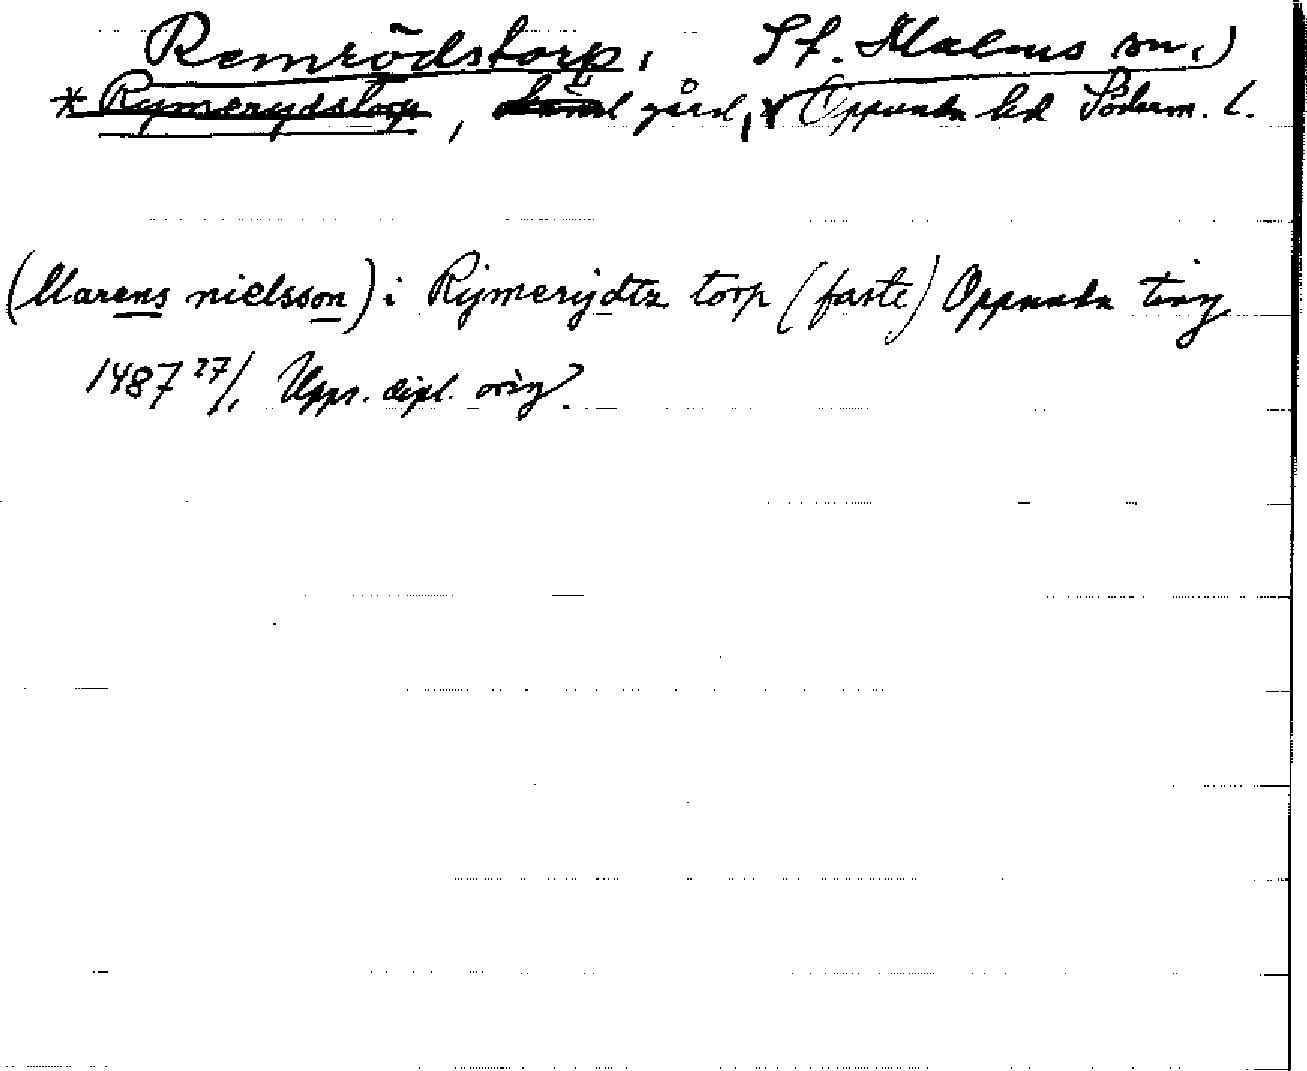 Remrödstorp, St. Malms sn,)
* Rymerydstorp, gård, Oppunda hd Söderm. l.
(Marens nielsson) i Rijmerijdtz torp (faste) Oppunda ting
1487 27/1 Upps. dipl. orig.